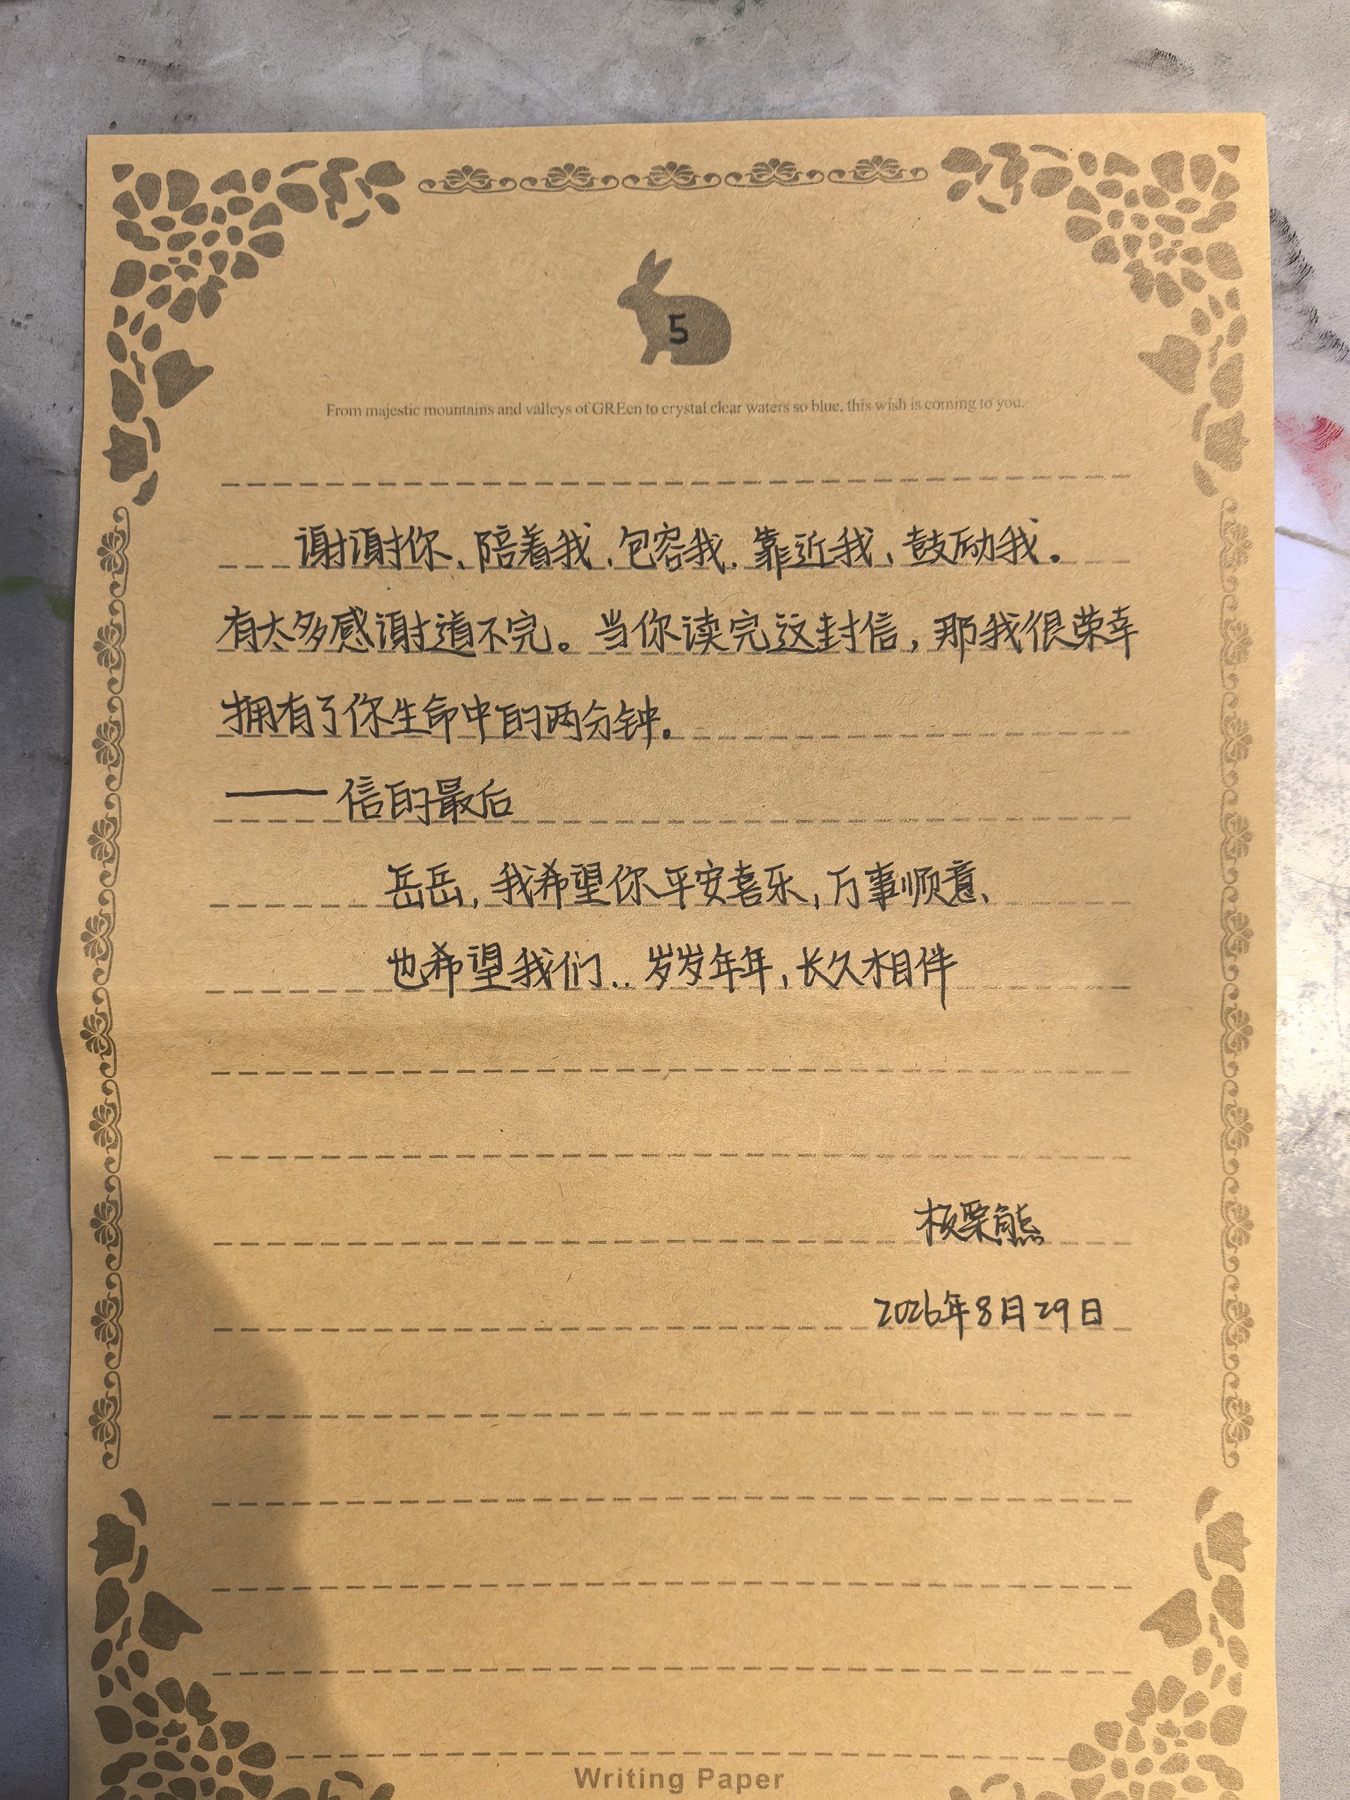 5
From majestic mountains and valleys of GREen to crystal clear waters so blue, this wish is coming to you.
谢谢你、陪着我、包容我、靠近我、鼓励我。
有太多感谢道不完。当你读完这封信，那我很荣幸
拥有了你生命中的两分钟。
——信的最后
岳岳，我希望你平安喜乐，万事顺意、
也希望我们..岁岁年年，长久相伴
板栗熊
2026年8月29日
Writing Paper